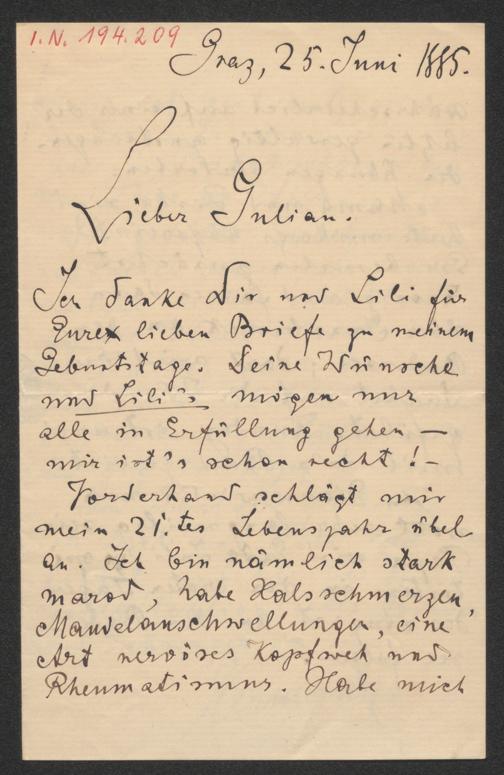 I.N. 194.209
Graz, 25. Juni 1885.
Lieber Gulian.
Ich danke Dir und Lili für
Eure lieben Briefe zu meinem
Geburtstage. Deine Wünsche
und Lili's mögen nur
alle in Erfüllung gehen —
mir ist's schon recht! —
Vorderhand schlägt mir
mein 21.tes Lebensjahr übel
an. Ich bin nämlich stark
marod, habe Halsschmerzen,
Mandelanschwellungen, eine
Art nervöses Kopfweh und
Rheumatismus. Habe mich